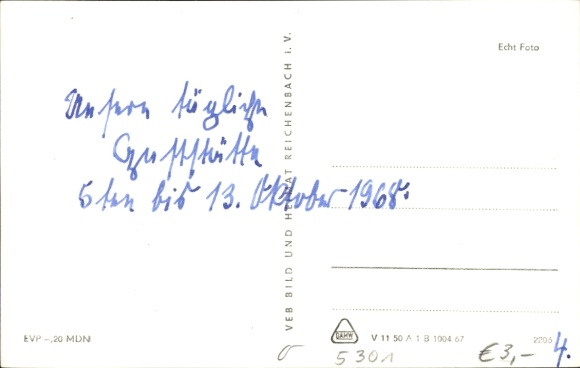 Echt Foto
Unsere tägliche
Gaststätte
5ten bis 13. Oktober 1968.
VEB BILD UND HEIMAT REICHENBACH i. V.
EVP -,20 MDN
DAHW
V 11 50 A 1 B 1004 67
2205
5301
€3,-
4.